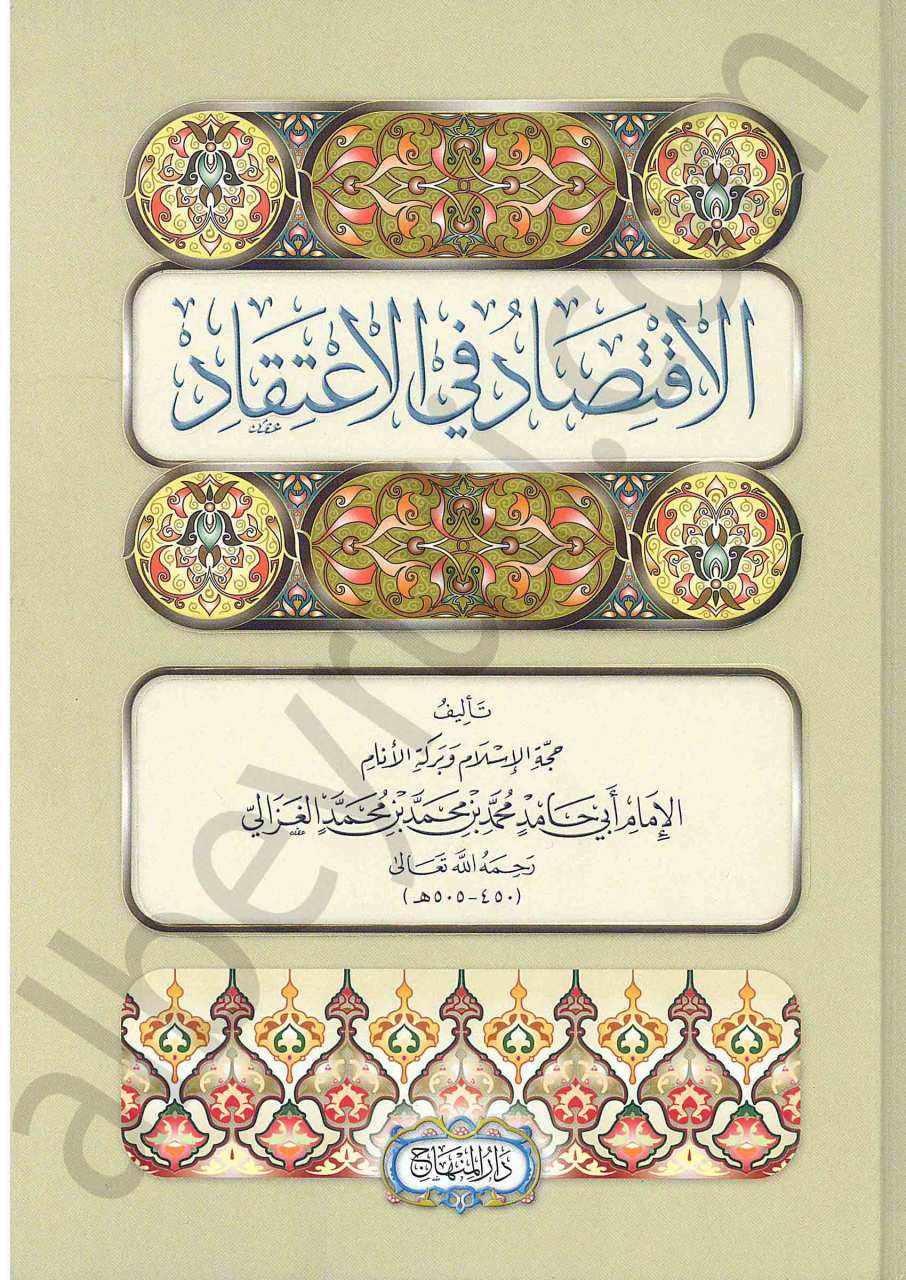 الاقْتِصَادُ في الاعْتِقَادِ
تَأليفُ
حجّة الإسْلَام وَبَركة الأنام
الإمَام أبي حَامِدٍ مُحمَّد بْن محمَّد بْن مُحمَّدٍ الغَزَاليّ
رَحِمَهُ الله تَعَالىٰ
(٤٥٠-٥٠٥هـ)
دَارُ المِنْهَاج
albeyruti.com